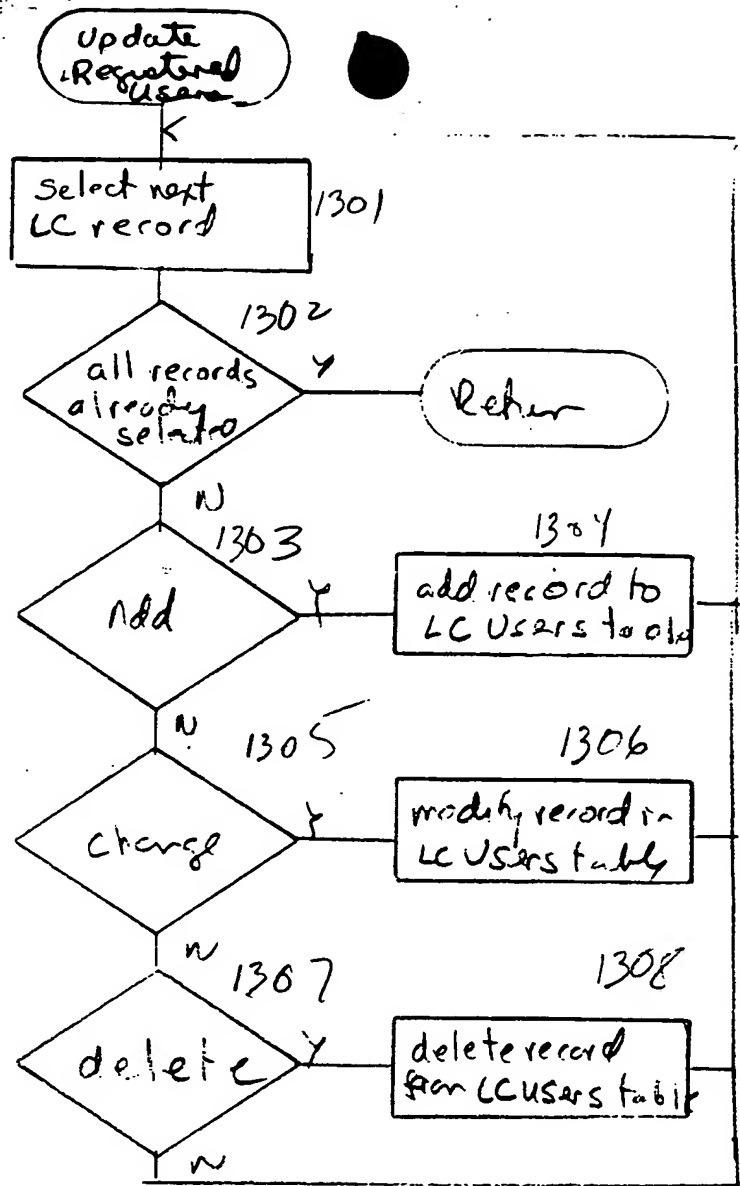 Update
Registered
Users
Select next
LC record
1301
1302
all records
already
selected
Y
Return
N
1303
Add
Y
1304
add record to
LC Users table
N
1305
change
Y
1306
modify record in
LC Users table
N
1307
delete
Y
1308
delete record
from LC Users table
N